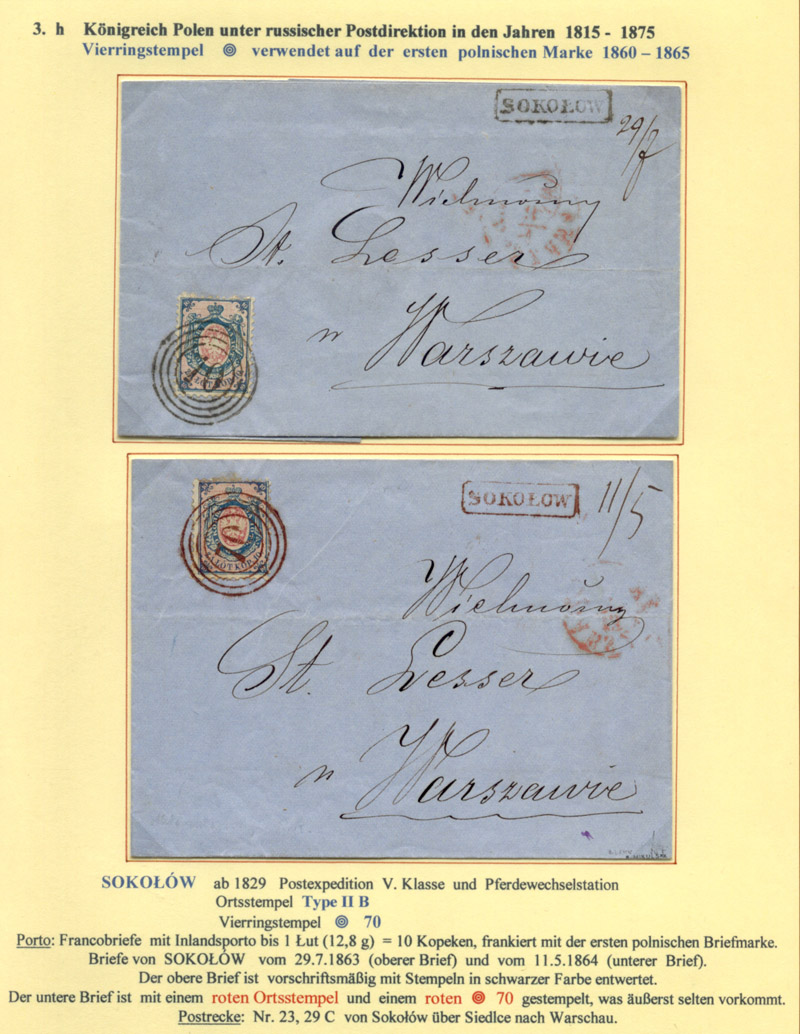 3. h Königreich Polen unter russischer Postdirektion in den Jahren 1815 - 1875
Vierringstempel verwendet auf der ersten polnischen Marke 1860 – 1865
SOKOŁÓW
29/7
Wielmożny
St. Lesser
w Warszawie
SOKOŁÓW
11/5
70
ŁÓT KOP. 10
Wielmożny
St. Lesser
w Warszawie
SOKOŁÓW ab 1829 Postexpedition V. Klasse und Pferdewechselstation
Ortsstempel Type II B
Vierringstempel 70
Porto: Francobriefe mit Inlandsporto bis 1 Łut (12,8 g) = 10 Kopeken, frankiert mit der ersten polnischen Briefmarke.
Briefe von SOKOŁÓW vom 29.7.1863 (oberer Brief) und vom 11.5.1864 (unterer Brief).
Der obere Brief ist vorschriftsmäßig mit Stempeln in schwarzer Farbe entwertet.
Der untere Brief ist mit einem roten Ortsstempel und einem roten 70 gestempelt, was äußerst selten vorkommt.
Postrecke: Nr. 23, 29 C von Sokołów über Siedlce nach Warschau.